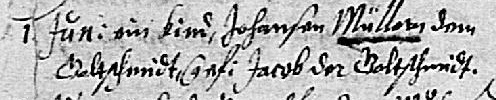 1 Juni ein kind, Johansen Müllern dem
Goltschmidt, Jacob der Goltschmidt.